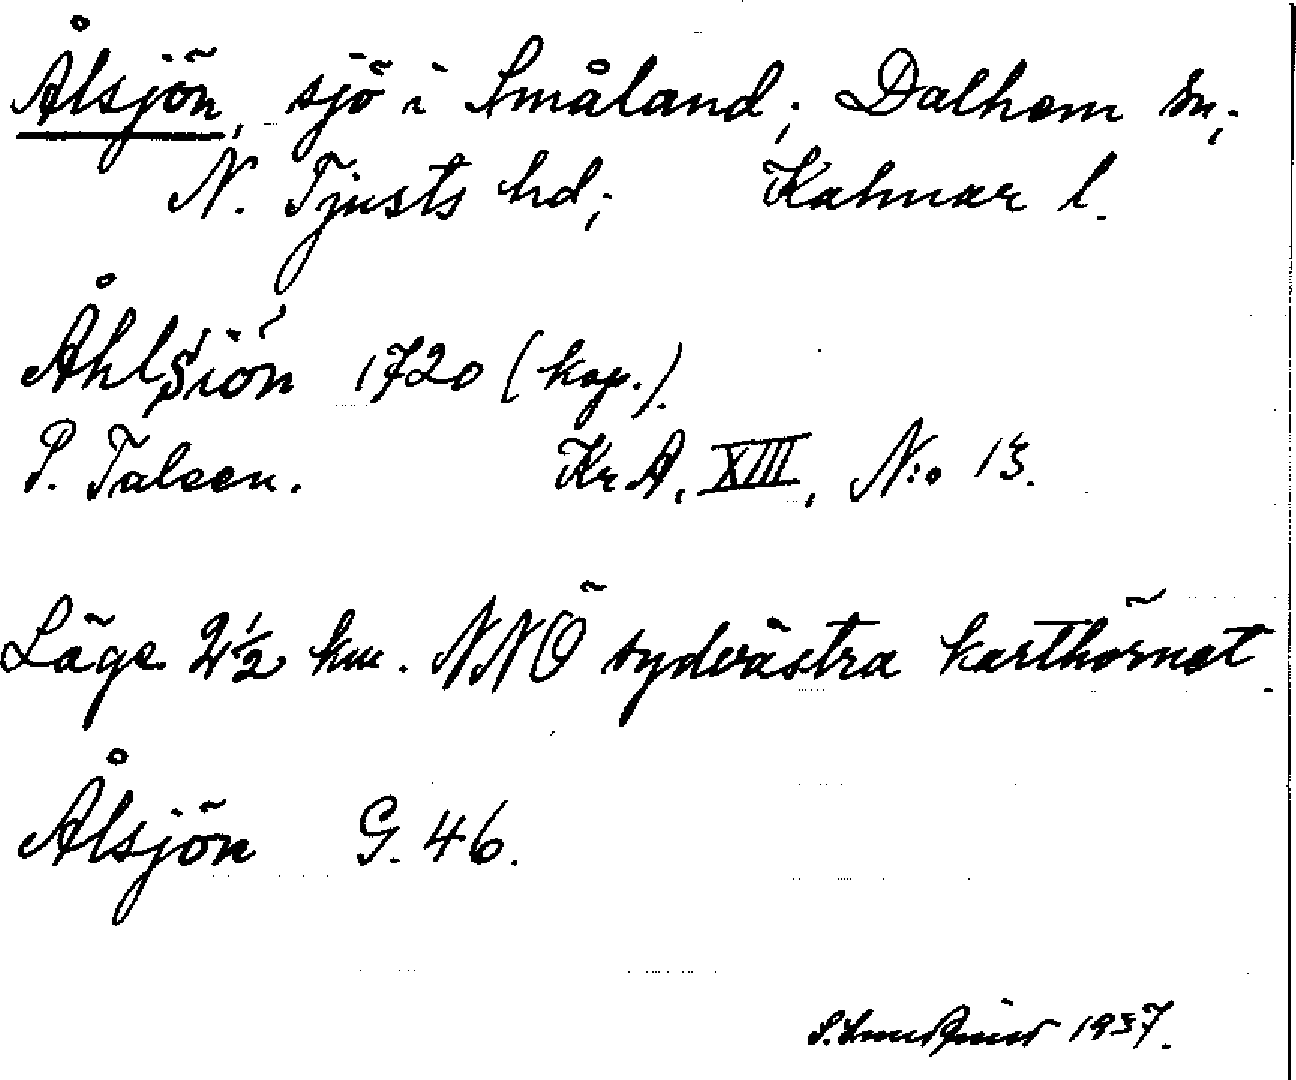 Ålsjön, sjö i Småland; Dalhem sn;
N. Tjusts hd; Kalmar l.
Åhlsiön 1720 (kop.).
P. Talsen. KrA, XIII, N:o 13.
Läge 2½ km. NNÖ sydvästra karthörnet.
Ålsjön G. 46.
1937.